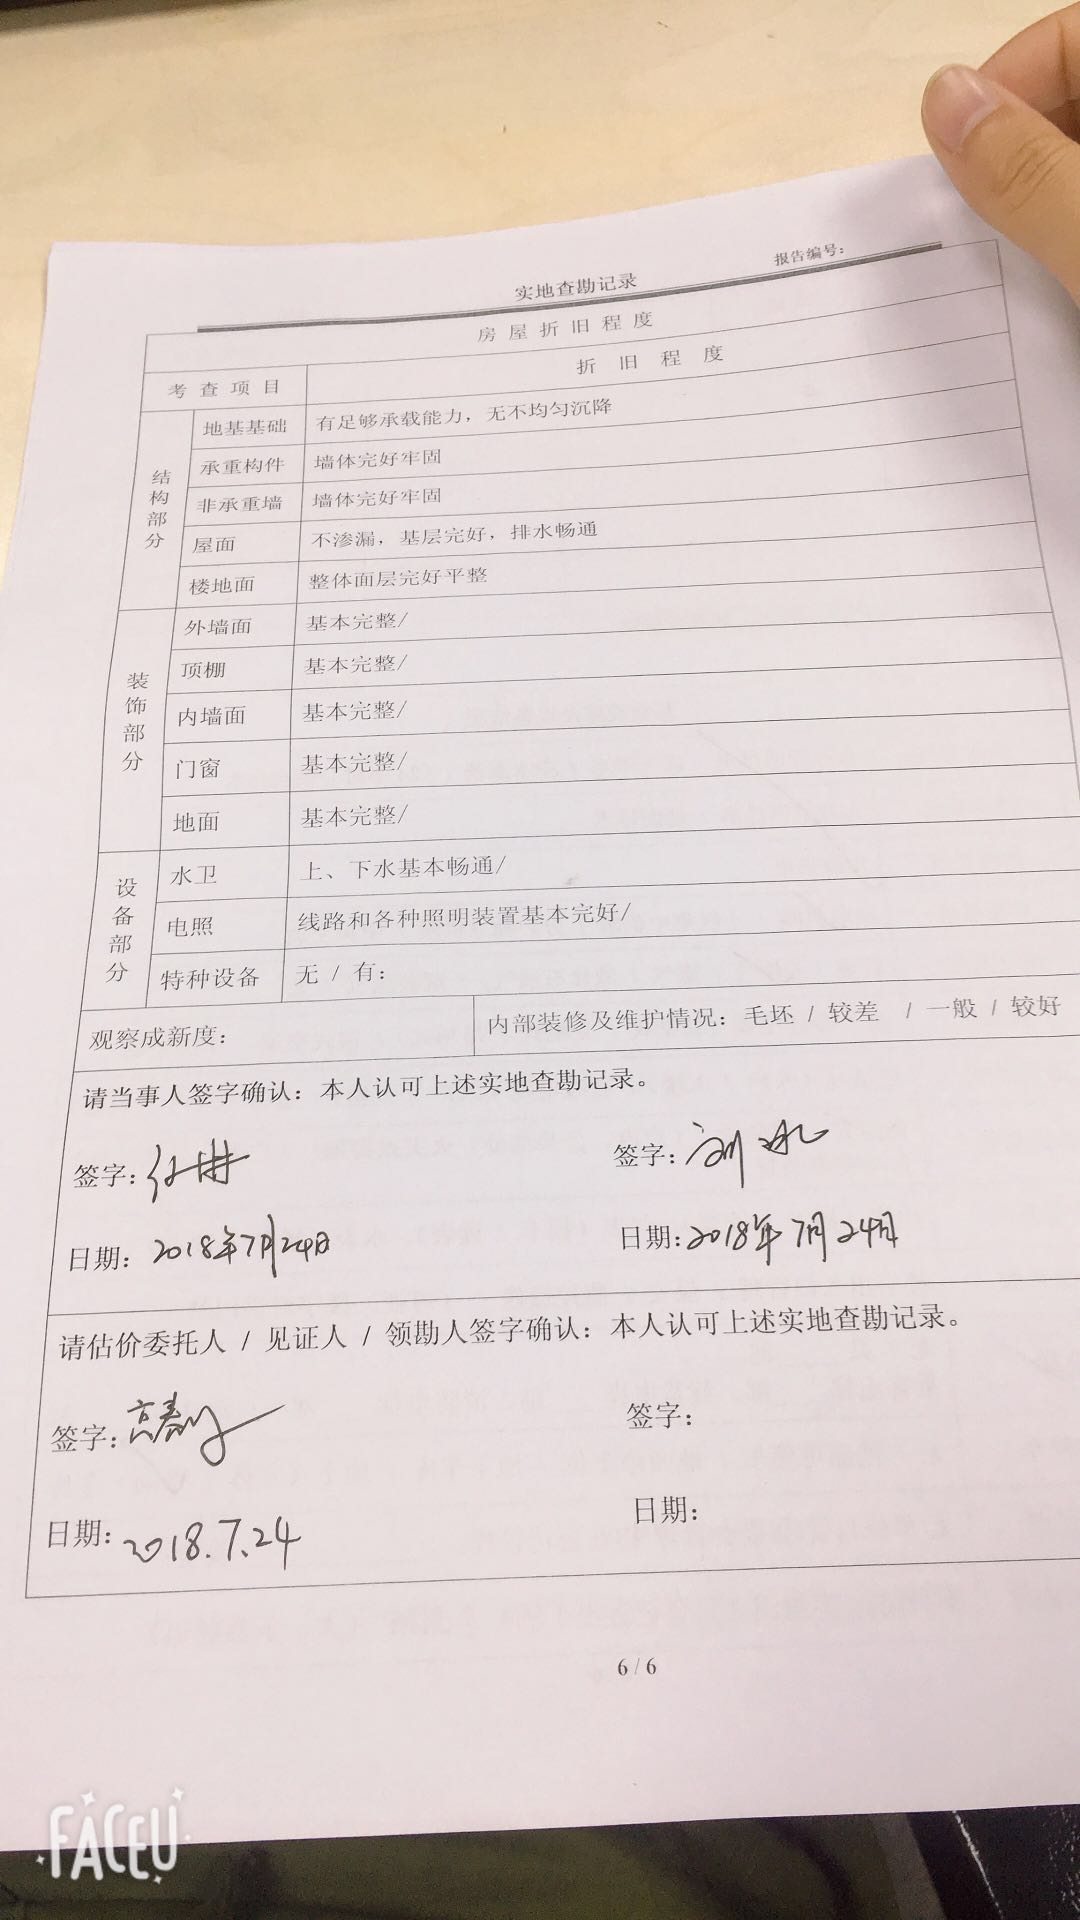 报告编号：
实地查勘记录
房屋折旧程度
考查项目 折旧程度
结构部分
地基基础 有足够承载能力，无不均匀沉降
承重构件 墙体完好牢固
非承重墙 墙体完好牢固
屋面 不渗漏，基层完好，排水畅通
楼地面 整体面层完好平整
装饰部分
外墙面 基本完整/
顶棚 基本完整/
内墙面 基本完整/
门窗 基本完整/
地面 基本完整/
设备部分
水卫 上、下水基本畅通/
电照 线路和各种照明装置基本完好/
特种设备 无 / 有：
观察成新度： 内部装修及维护情况：毛坯 / 较差 / 一般 / 较好
请当事人签字确认：本人认可上述实地查勘记录。
签字： 签字：刘冰
日期：2018年7月24日 日期：2018年7月24日
请估价委托人 / 见证人 / 领勘人签字确认：本人认可上述实地查勘记录。
签字： 签字：
日期：2018.7.24 日期：
6 / 6
FACEU